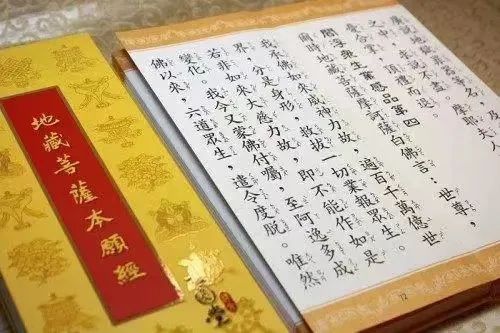 地藏菩薩本願經
之中，求說不盡。摩耶夫人
愁憂合掌，頂禮而退。
閻浮眾生業感品第四
爾時地藏菩薩摩訶薩白佛言：世尊，
我承佛如來威神力故，遍百千萬億世
界，分是身形，救拔一切業報眾生。
若非如來大慈力故，即不能作如是
變化。我今又蒙佛付囑，至阿逸多成
佛以來，六道眾生，遣令度脫。唯然
12